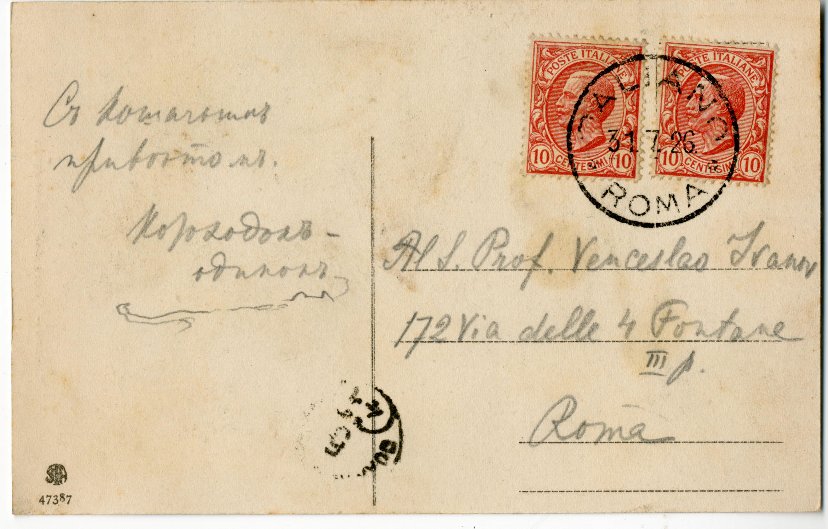 Съ кошачьимъ
привѣтомъ.
одинокъ
POSTE ITALIANE
10 CENTESIMI 10
POSTE ITALIANE
10 CENTESIMI 10
31.7.26
ROMA
Al S. Prof. Venceslao Ivanov
172 Via delle 4 Fontane
III p.
Roma
47387